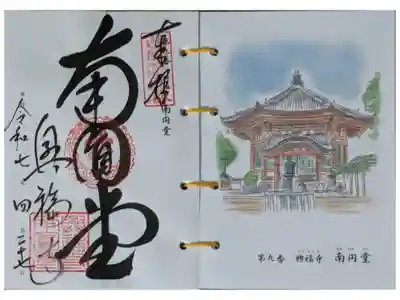 奉拝
南円堂
南円堂
興福寺
令和七年四月二十七日
第九番 興福寺 南円堂